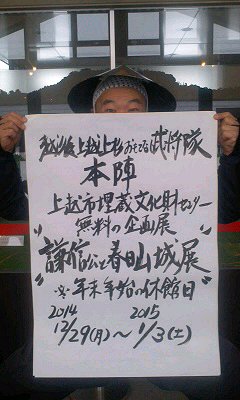 越後上越上杉おもてなし武将隊
本陣
上越市埋蔵文化財センター
無料の企画展
"謙信公と春日山城展"
※年末年始の休館日
2014 2015
12/29(月)〜1/3(土)